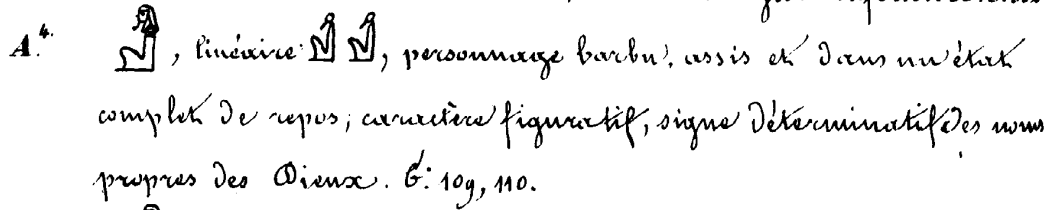 A.⁴ , linéaire , personnage barbu, assis et dans un état
complet de repos; caractère figuratif, signe déterminatif des noms
propres des Dieux. G: 109, 110.